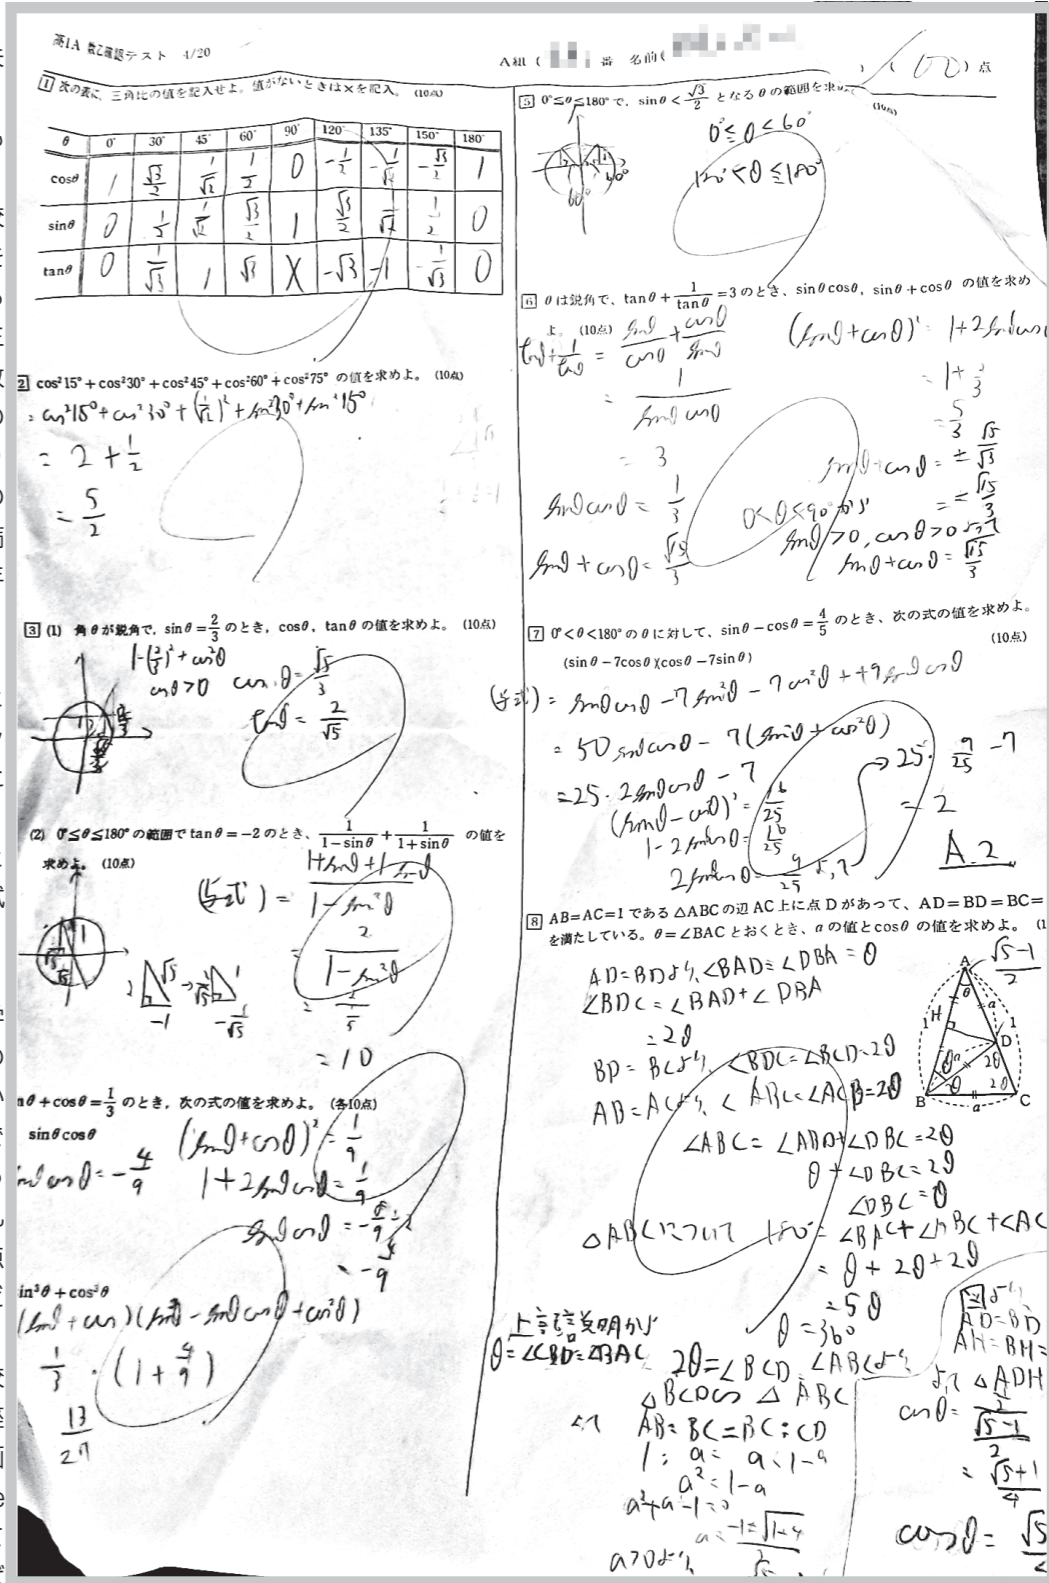 高1A 数乙確認テスト 4/20
A組( 番 名前( ) (100)点
1 次の表に、三角比の値を記入せよ。値がないときは×を記入。(10点)
θ 0° 30° 45° 60° 90° 120° 135° 150° 180°
cosθ 1 √3/2 1/√2 1/2 0 -1/2 -1/√2 -√3/2 1
sinθ 0 1/2 1/√2 √3/2 1 √3/2 1/√2 1/2 0
tanθ 0 1/√3 1 √3 X -√3 -1 -1/√3 0
2 cos²15°+cos²30°+cos²45°+cos²60°+cos²75° の値を求めよ。(10点)
= cos²15°+cos²30°+(1/√2)²+sin²30°+sin²15°
= 2 + 1/2
= 5/2
3 (1) 角θが鋭角で、sinθ=2/3 のとき、cosθ, tanθ の値を求めよ。(10点)
1-(2/3)²+cos²θ
cosθ>0 cosθ= √5/3
tanθ = 2/√5
(2) 0°≦θ≦180° の範囲で tanθ=-2 のとき、1/(1-sinθ) + 1/(1+sinθ) の値を
求めよ。(10点)
(与式) = (1+sinθ+1-sinθ)/(1-sin²θ)
= 2/(1-sin²θ)
= 2/(1/5)
= 10
2 √5 → 2/√5 1
-1 -1/√5
nθ+cosθ=1/3 のとき、次の式の値を求めよ。(各10点)
sinθcosθ
(sinθ+cosθ)² = 1/9
sinθcosθ=-4/9 1+2sinθcosθ=1/9
sinθcosθ = -8/9÷2
= -4/9
in³θ+cos³θ
(sinθ+cosθ)(sin²θ-sinθcosθ+cos²θ)
1/3 · (1+4/9)
13/27
5 0°≦θ≦180°で、sinθ<√3/2 となるθの範囲を求
(10点)
0°≦θ<60°
120°<θ≦180°
60° 60°
6 θは鋭角で、tanθ+1/tanθ=3のとき、sinθcosθ, sinθ+cosθ の値を求め
よ。(10点)
tanθ+1/tanθ = sinθ/cosθ + cosθ/sinθ
= 1/(sinθcosθ)
= 3
sinθcosθ = 1/3
sinθ+cosθ= √15/3
(sinθ+cosθ)² = 1+2sinθcosθ
= 1+2/3
= 5/3
sinθ+cosθ = ±√5/√3
= ±√15/3
0<θ<90°より
sinθ>0, cosθ>0より
sinθ+cosθ=√15/3
7 0°<θ<180°のθに対して、sinθ-cosθ=4/5 のとき、次の式の値を求めよ。
(10点)
(sinθ-7cosθ)(cosθ-7sinθ)
(与式) = sinθcosθ-7sin²θ-7cos²θ++49sinθcosθ
= 50sinθcosθ-7(sin²θ+cos²θ)
=25·2sinθcosθ-7 → 25· 9/25 -7
(sinθ-cosθ)²=16/25 = 2
1-2sinθcosθ=16/25
2sinθcosθ=9/25 より、 A.2
8 AB=AC=1である△ABCの辺AC上に点Dがあって、AD=BD=BC=
を満たしている。θ=∠BACとおくとき、aの値とcosθの値を求めよ。(1
AD=BDより、∠BAD=∠DBA=θ
∠BDC=∠BAD+∠DBA
=2θ
BD=BCより、∠BDC=∠BCD=2θ
AB=ACより、∠ABC=∠ACB=2θ
∠ABC=∠ABD+∠DBC=2θ
θ+∠DBC=2θ
∠DBC=θ
△ABCについて 180°=∠BAC+∠ABC+∠AC
= θ+2θ+2θ
=5θ
θ=36°
上記説明から
θ=∠CBD=∠BAC 2θ=∠BCD=∠ABCより
△BCD∽△ABC
よって AB:BC=BC:CD
1:a=a:1-a
a²=1-a
a²+a-1=0
a=(-1±√1+4)/2
a>0より
√5-1/2
A θ a 1 1 H D a 2θ θ θ 2θ B a C
図より
AD=BD
AH=BH=
よって△ADH
cosθ= 1/2/(√5-1)/2
= √5+1/4
cosθ= √5